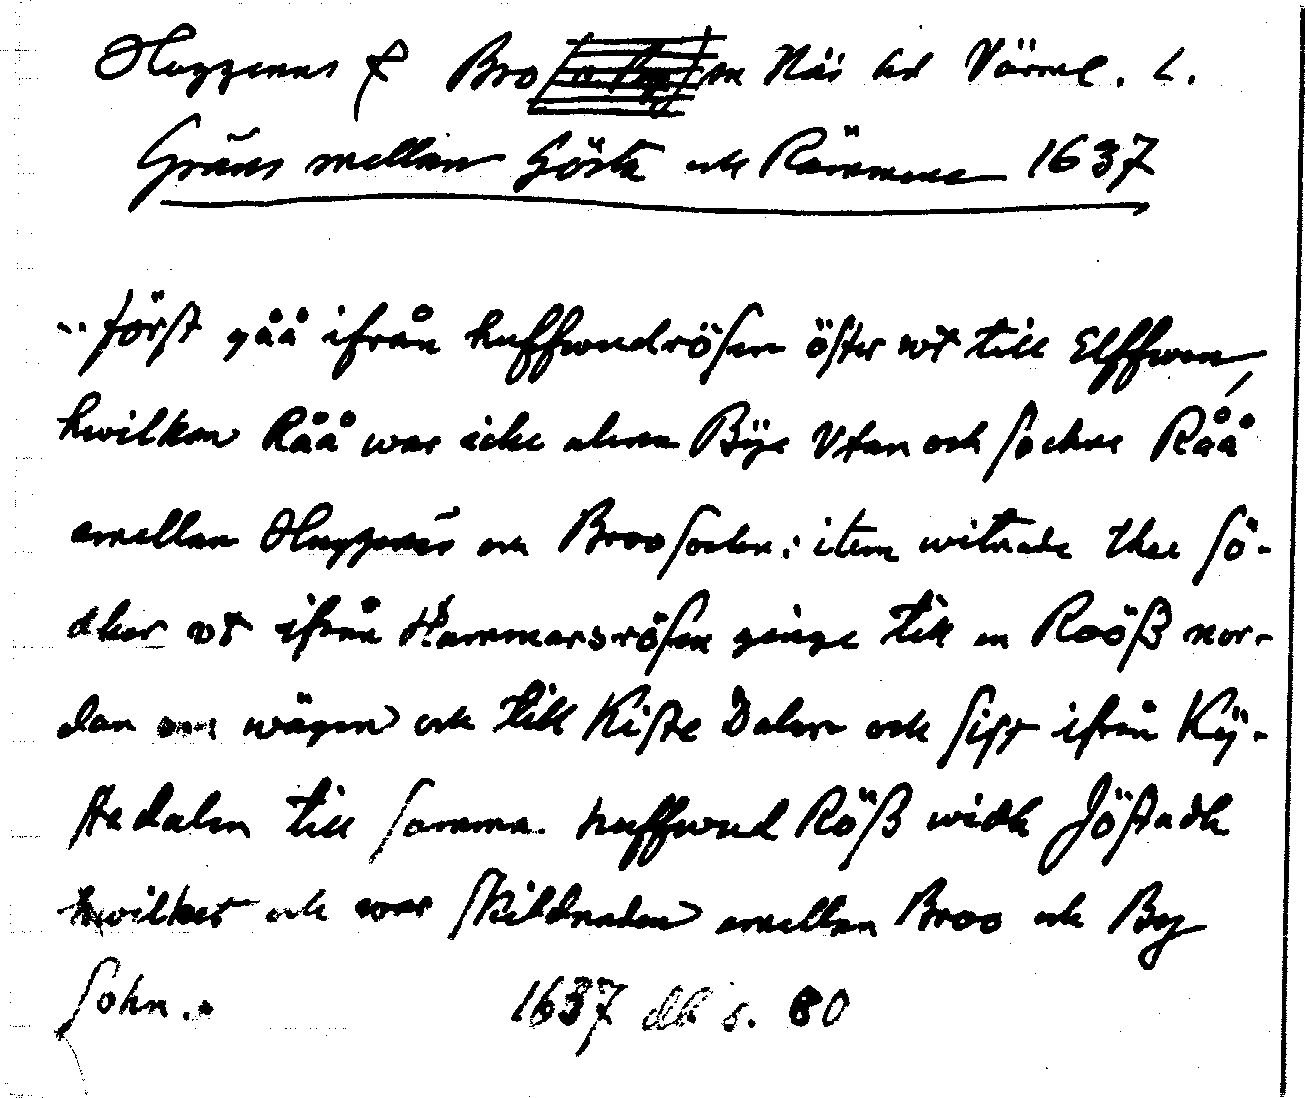 Huggenäs f Bro sn Näs hd Värml. L.
Gräns mellan Gösta och Rämmene 1637
.. först gåå ifrån huffwudrösen öster vt till Elffwen,
hwilken Råå war icke alenn Bÿe Vtan och sochne Råå
emellan Huggenäs och Broo sochn: item witnade the sö-
dher vt ifrån Hammarsrösen ginge till en Rööß nor-
dan om wägen och till Kiste Dalen och sist ifrån Kÿ-
stedalen till samma huffwud Röß widh Jöstadh
hwilket och war skildnaden emellan Broo och By
sokn.. 1637 db s. 80